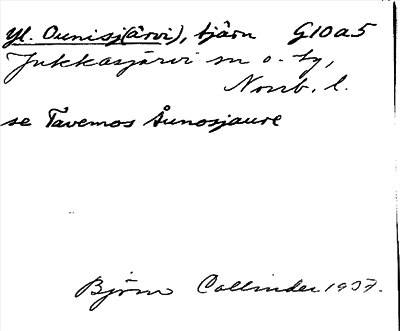 Yl. Ounisj(ärvi), tjärn G10a5
Jukkasjärvi sn o. tg,
Norrb. l.
se Tavemos Åunosjaure
Björn Collinder 1937.